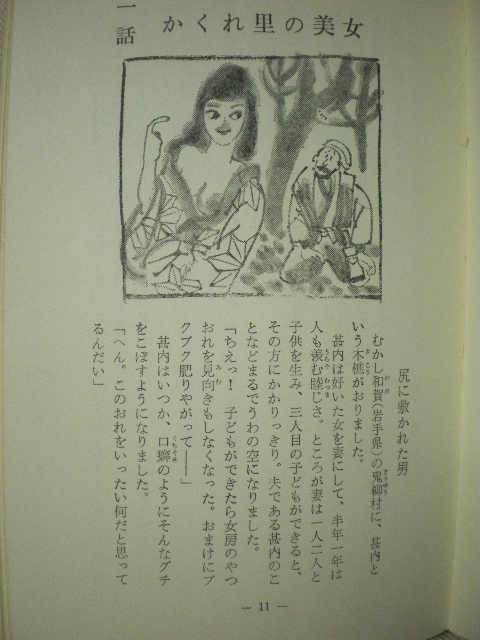 一話
かくれ里の美女
尻に敷かれた男
むかし和賀(岩手県)の鬼柳村に、甚内と
いう木樵がおりました。
甚内は好いた女を妻にして、半年一年は
人も羨む睦じさ。ところが妻は一人二人と
子供を生み、三人目の子どもができると、
その方にかかりっきり。夫である甚内のこ
となどまるでうわの空になりました。
「ちえっ! 子どもができたら女房のやつ
おれを見向きもしなくなった。おまけにブ
クブク肥りやがって――」
甚内はいつか、口癖のようにそんなグチ
をこぼすようになりました。
「へん。このおれをいったい何だと思って
るんだい」
— 11 —